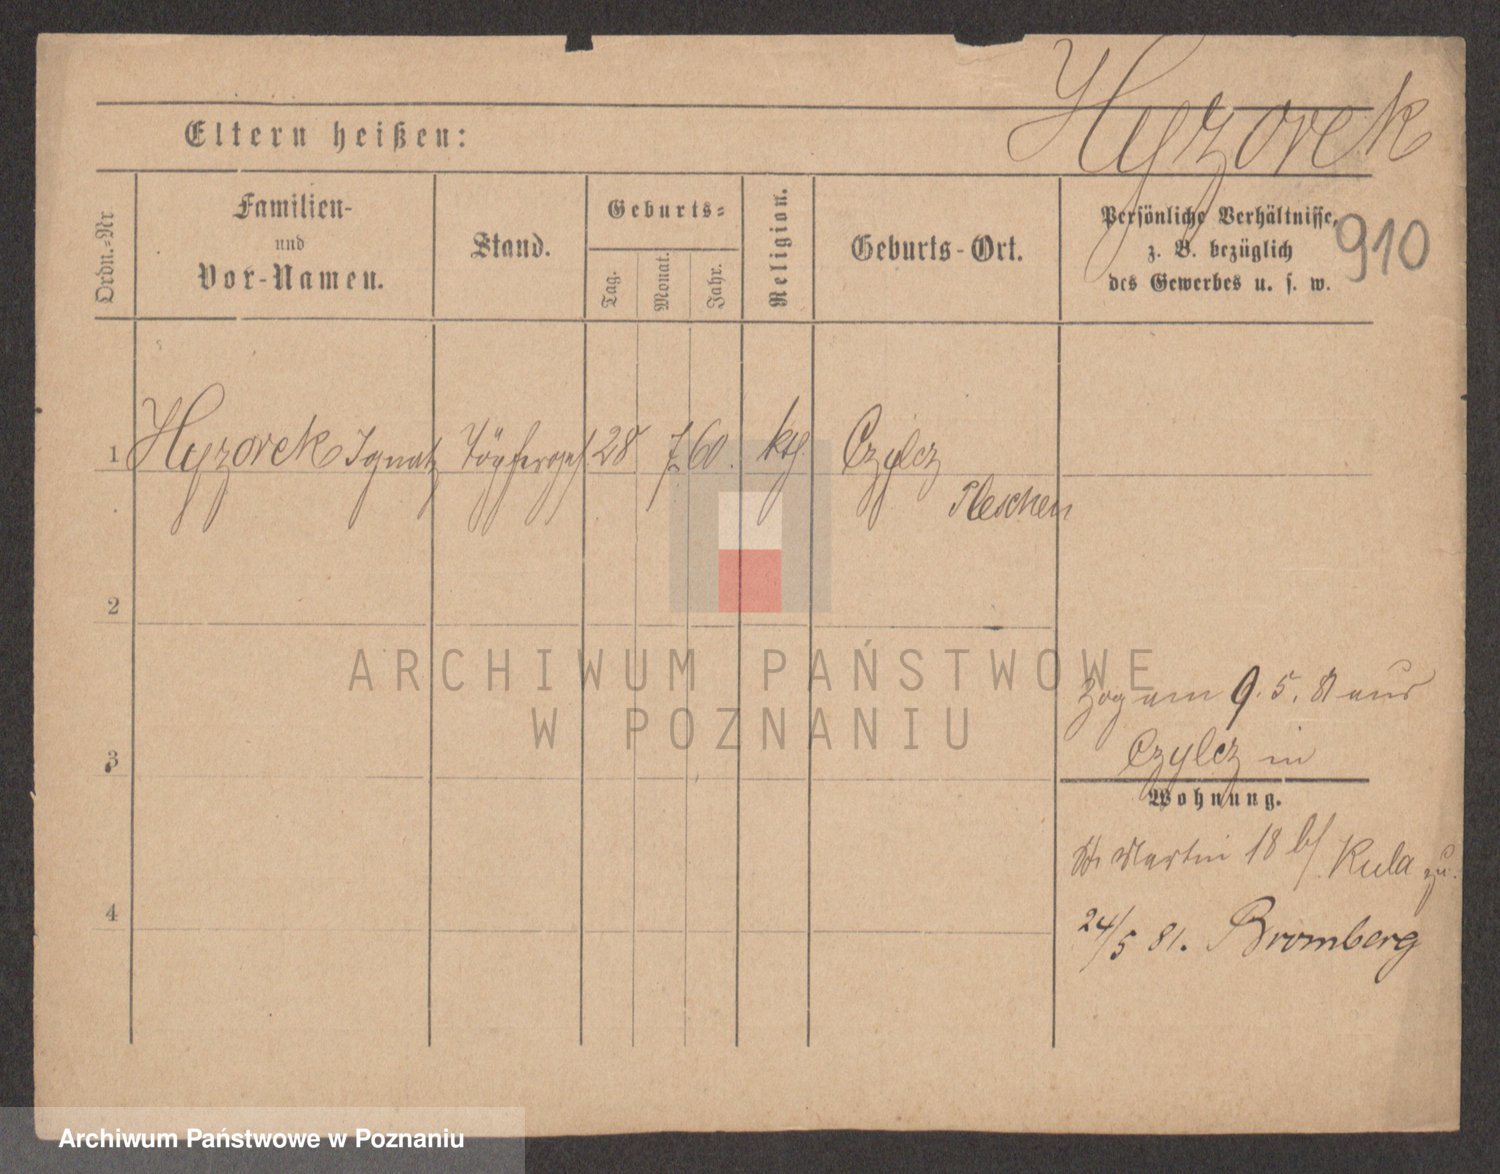 Hyzorek
Eltern heißen:
910
Ordn.-Nr
Familien-
und
Vor-Namen.
Stand.
Geburts-
Tag.
Monat.
Jahr.
Religion.
Geburts-Ort.
Persönliche Verhältnisse,
z. B. bezüglich
des Gewerbes u. s. w.
1 Hyzorek Ignatz Töpferges. 28 7. 60. kth. Czylcz
Pleschen
2
ARCHIWUM PAŃSTWOWE
W POZNANIU
Zog am 9. 5. 81 aus
3
Czylcz in
Wohnung.
St. Martin 18 b/ Kula zu.
4
24/5 81. Bromberg
Archiwum Państwowe w Poznaniu